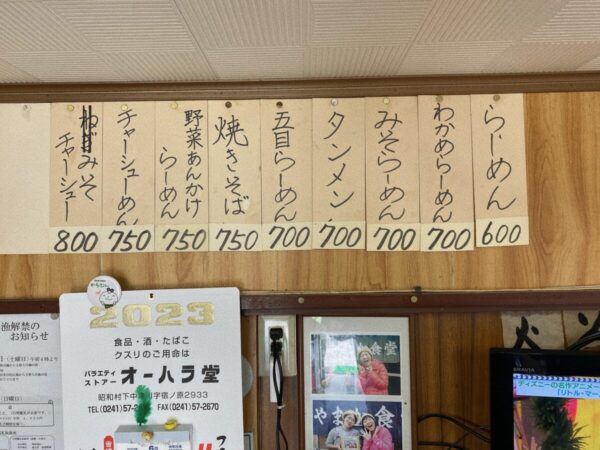 らーめん
600
わかめらーめん
700
みそらーめん
700
タンメン
700
五目らーめん
700
焼きそば
750
野菜あんかけ
らーめん
750
チャーシューめん
750
みそ
チャーシュー
800
2023
食品・酒・たばこ
クスリのご用命は
バラエティ
ストアー
オーハラ堂
TEL(0241)57-
FAX(0241)57-2670
漁解禁の
お知らせ
食堂
やまかの食
BRAVIA
ディズニーの名作アニメー
「リトル・マー